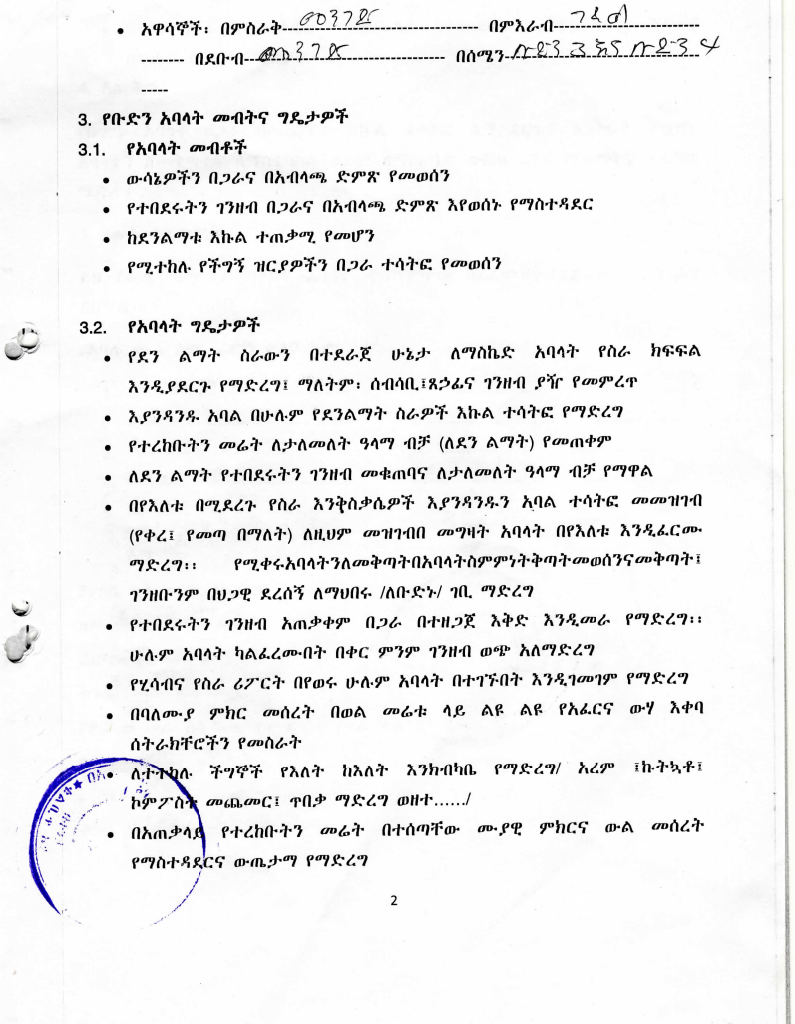 • አዋሳኞች፡ በምስራቅ መንገድ በምእራብ
-------- በደቡብ መንገድ በሰሜን
-----
3. የቡድን አባላት መብትና ግዴታዎች
3.1. የአባላት መብቶች
• ውሳኔዎችን በጋራና በአብላጫ ድምጽ የመወሰን
• የተበደሩትን ገንዘብ በጋራና በአብላጫ ድምጽ እየወሰኑ የማስተዳደር
• ከደንልማቱ እኩል ተጠቃሚ የመሆን
• የሚተከሉ የችግኝ ዝርያዎችን በጋራ ተሳትፎ የመወሰን
3.2. የአባላት ግዴታዎች
• የደን ልማት ስራውን በተደራጀ ሁኔታ ለማስኬድ አባላት የስራ ክፍፍል
እንዲያደርጉ የማድረግ፤ ማለትም፡ ሰብሳቢ፤ጸኃፊና ገንዘብ ያዥ የመምረጥ
• እያንዳንዱ አባል በሁሉም የደንልማት ስራዎች እኩል ተሳትፎ የማድረግ
• የተረከቡትን መሬት ለታለመለት ዓላማ ብቻ (ለደን ልማት) የመጠቀም
• ለደን ልማት የተበደሩትን ገንዘብ መቁጠባና ለታለመለት ዓላማ ብቻ የማዋል
• በየእለቱ በሚደረጉ የስራ እንቅስቃሴዎች እያንዳንዱን አባል ተሳትፎ መመዝገብ
(የቀረ፤ የመጣ በማለት) ለዚህም መዝገብበ መግዛት አባላት በየእለቱ እንዲፈርሙ
ማድረግ፡፡ የሚቀሩአባላትንለመቅጣትበአባላትስምምነትቅጣትመወሰንናመቅጣት፤
ገንዘቡንም በህጋዊ ደረሰኝ ለማህበሩ /ለቡድኑ/ ገቢ ማድረግ
• የተበደሩትን ገንዘብ አጠቃቀም በጋራ በተዘጋጀ እቅድ እንዲመራ የማድረግ፡፡
ሁሉም አባላት ካልፈረሙበት በቀር ምንም ገንዘብ ወጭ አለማድረግ
• የሂሳብና የስራ ሪፖርት በየወሩ ሁሉም አባላት በተገኙበት እንዲገመገም የማድረግ
• በባለሙያ ምክር መሰረት በወል መሬቱ ላይ ልዩ ልዩ የአፈርና ውሃ እቀባ
ሰትራክቸሮችን የመስራት
• ለተተከሉ ችግኞች የእለት ከእለት እንክብካቤ የማድረግ/ አረም ፤ኩትኳቶ፤
ኮምፖስት መጨመር፤ ጥበቃ ማድረግ ወዘተ....../
• በአጠቃላይ የተረከቡትን መሬት በተሰጣቸው ሙያዊ ምክርና ውል መሰረት
የማስተዳደርና ውጤታማ የማድረግ
2